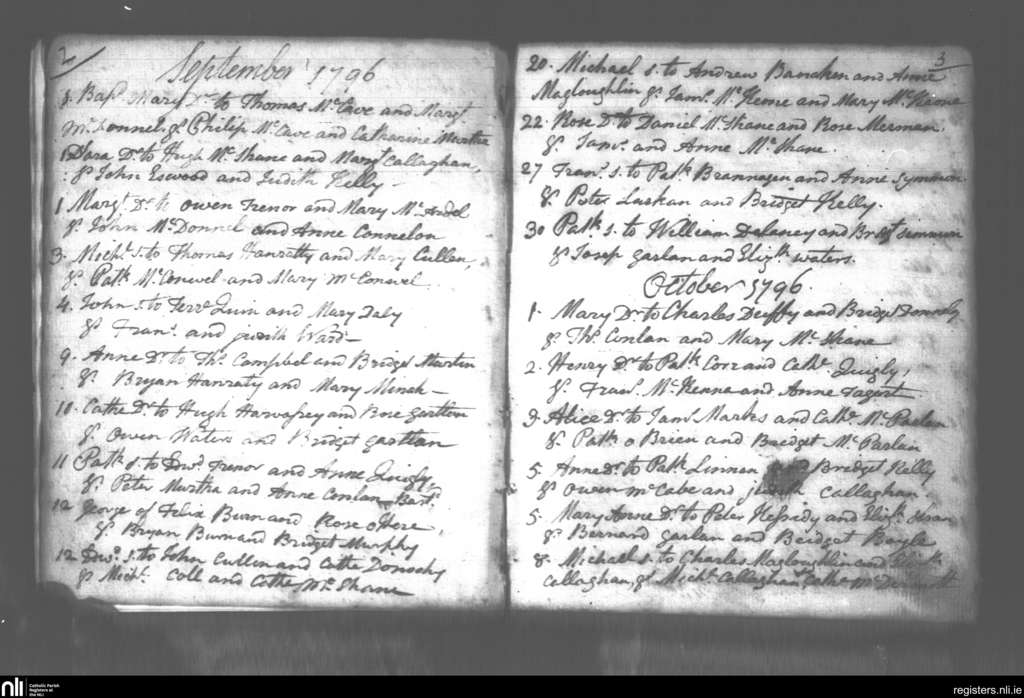 2
September 1796
3. Bapd. Mary Dr. to Thomas McCave and Margt.
McDonnel gs. Philip McCave and Catharine Murtha
1 Sara Dr. to Hugh McShane and Margt Callaghan,
gs John Eswood and Judith Kelly
1 Margt. Dr. to Owen Trenor and Mary McArdel
gs. John McDonnel and Anne Connelon
3. Michl. s. to Thomas Hanratty and Mary Cullen,
gs. Patk. McConwel and Mary McConwel
4. John s. to Ferrl Quin and Mary Daly
gs. Frans. and Judith Ward
9. Anne Dr. to Ths. Campbel and Bridget Murtin
gs. Bryan Hanraty and Mary
10. Cathe Dr. to Hugh and Rose gartlan
gs. Owen Waters and Bridget gartlan
11 Patk s. to Edwd. Trenor and Anne Quigly,
gs. Peter Murtha and Anne Conlan
12 George of Felix Burn and Rose oHere,
gs. Bryan Burn and Bridget Murphy
12 Edwd. s. to John Cullen and Cathe
gs. Michl. Coll and Cathe McShane
3
20. Michael s. to Andrew and Anne
Magloughlin gs. Jams. McKeone and Mary McKeone
22. Rose Dr. to Daniel McShane and Rose Merman.
gs. Jams. and Anne McShane.
27 Frans. s. to Patk Brannagen and Anne
gs. Peter and Bridget Kelly.
30 Patk s. to William Delaney and Bridgt
gs Josep garlan and Elizth. waters.
October 1796.
1. Mary Dr. to Charles Duffy and Bridget Donnely
gs. Ths. Conlan and Mary McShane
2. Henry Dr. to Patk. Corr and Cathe. Quigly,
gs. Frans. McKenna and Anne Tagert
3. Alice Dr. to Jams. Marks and Cathe. McParlan
gs. Patk o Brien and Bredget McParlan
5. Anne Dr. to Patk Linnan and Bridget Kelly
gs Owen McCabe and judith Callaghan.
5. Mary Anne Dr. to Peter and Elizth.
gs. Bernard garlan and Bridget Boyle
8. Michael s. to Charles Magloughlin and
Callaghan, gs Michl. Callaghan Cathe
nli
Catholic Parish
Registers at
the NLI
registers.nli.ie